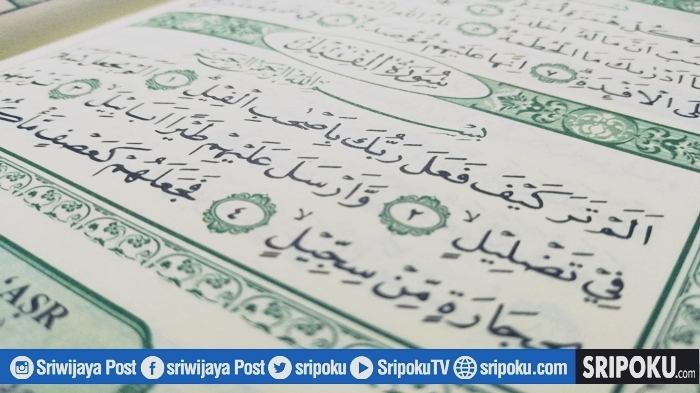 لَى الْاَفْـِٕدَةِۗ ٧ اِنَّهَا عَلَيْهِمْ مُّؤْصَدَةٌ
سُوْرَةُ الْفِيْلِ
بِسْمِ اللّٰهِ الرَّحْمٰنِ الرَّحِيْمِ
اَلَمْ تَرَ كَيْفَ فَعَلَ رَبُّكَ بِاَصْحٰبِ الْفِيْلِۗ ١ اَلَمْ يَجْعَلْ
فِيْ تَضْلِيْلٍۙ ٢ وَّاَرْسَلَ عَلَيْهِمْ طَيْرًا اَبَابِيْلَۙ ٣ تَرْمِيْهِمْ
بِحِجَارَةٍ مِّنْ سِجِّيْلٍۙ ٤ فَجَعَلَهُمْ كَعَصْفٍ
'AṢR
Sriwijaya Post sriwijaya Post sripoku SripokuTV sripoku.com SRIPOKU.com